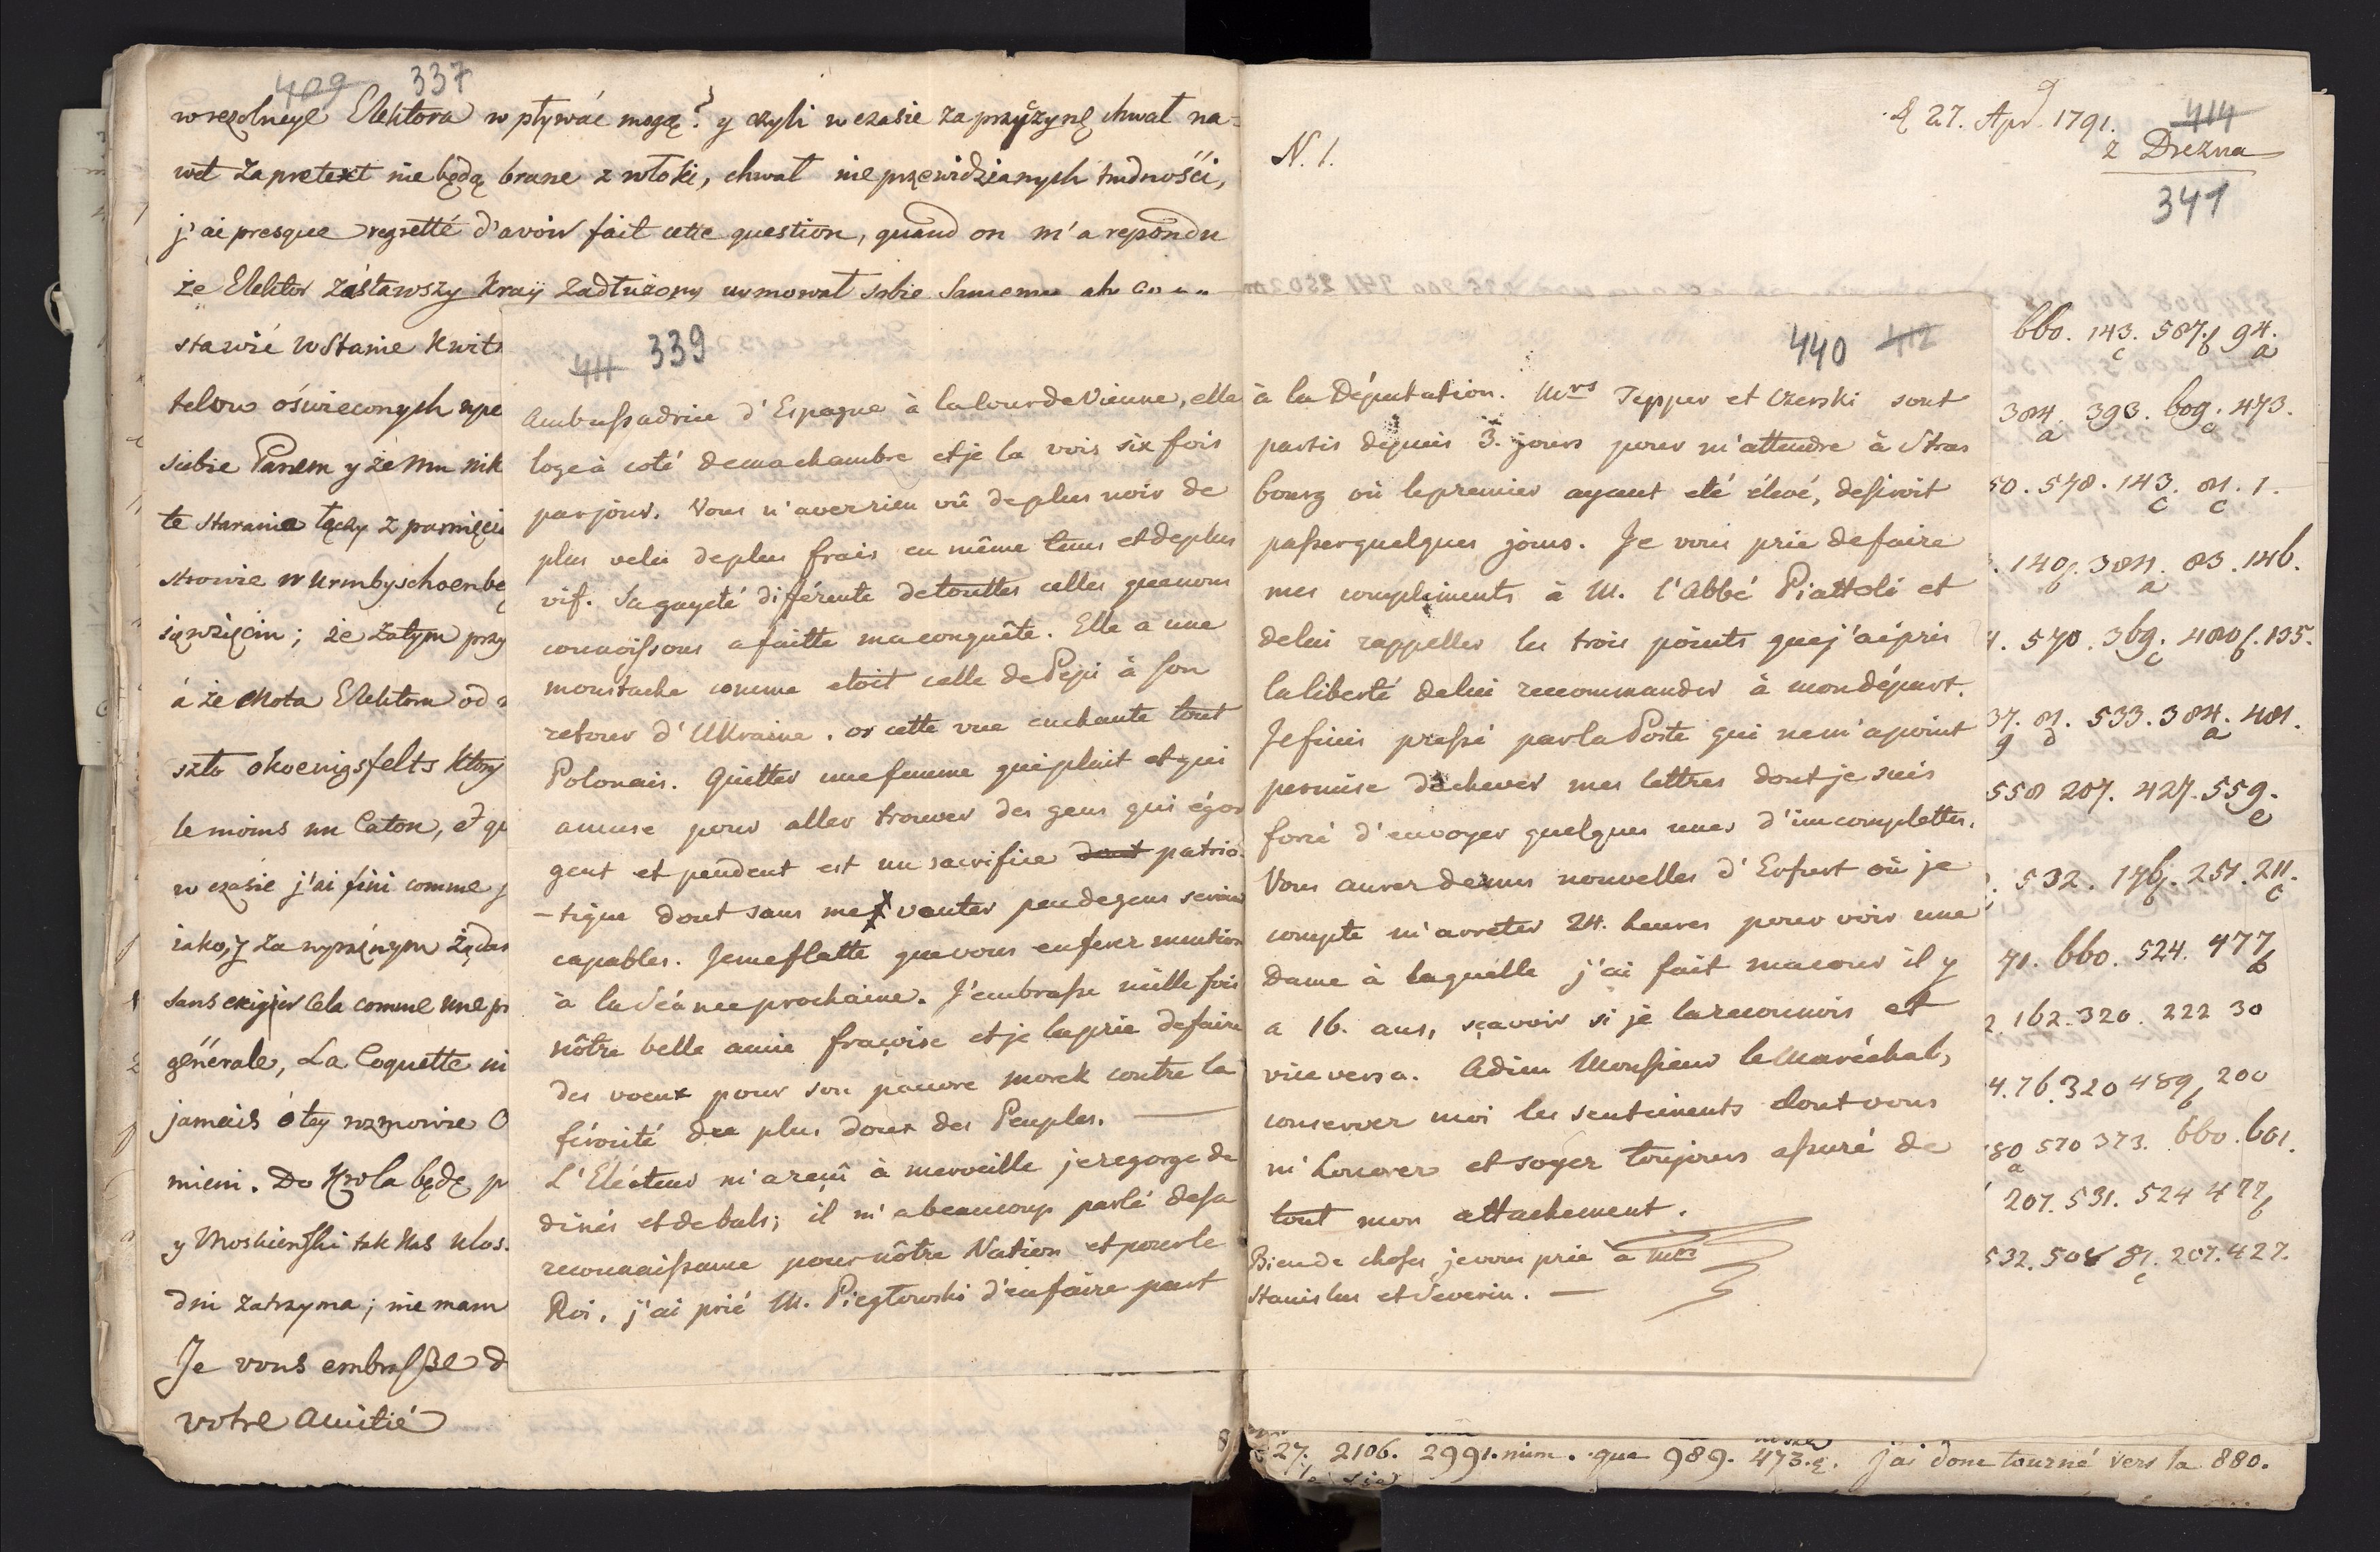 409 337
w rezolucye Elektora wpływać mogą? y czyli w czasie za przyczynę chwał na=
wet za pretext nie będą brane zwłoki, chwał nieprzewidzianych trudności,
j'ai presque regretté d'avoir fait cette question, quand on m'a repondu
że Elektor zastawszy Kray zadłużony
stawić w Stanie Kwit
telow oświeconych
siebie Panem y że Mu nik
te staranie
strowie
sięwzięciu; że zatym przy
á że Elektora od
szło
le moins un Caton, et qu
w czasie j'ai fini comme j
iako y za
Sans exiger cela comme une pr
générale, La Coquette
jamais
mieni. Do Krola będę p
y Moskieński tak Nas
dni zatrzyma; nie mam
Je vous embrasse d
votre Amitié
411 339
Ambassadrice d'Espagne à la Cour de Vienne, elle
loge à coté de ma chambre et je la vois six fois
par jour. Vous n'avez rien vû de plus noir de
plus velu de plus frais en même tems et de plus
vif. Sa gayeté différente de touttes celles que nous
connoissons a faitte ma conquête. Elle a une
moustache comme etoit celle de Pepi à son
retour d'Ukraine. or cette vue enchante tout
Polonais. Quitter une femme qui plait et qui
amuse pour aller trouver des gens qui égor
gent et pendent est un sacrifice dont patrio-
-tique dont sans me vanter peu de gens seroient
capables. Je me flatte que vous en ferez mention
à la Séance prochaine. J'embrasse mille fois
nôtre belle amie françoise et je la prie de faire
des voeux pour son pauvre morek contre la
férocité du plus doux des Peuples. —
L'Electeur m'a reçû à merveille je regorge de
dinés et de bals; il m'a beaucoup parlé de sa
reconnaissance pour nôtre Nation et pour le
Roi, j'ai prié M. Piegłowski d'en faire part
440 412
à la Députation. Mrs Tepper et Czerski sont
partis depuis 3. jours pour m'attendre à Stras
bourg où le premier ayant eté élevé, desiroit
passer quelques jours. Je vous prie de faire
mes compliments à M. l'Abbé Piattoli et
de lui rappeller les trois points que j'ai pris
la liberté de lui recommander à mon départ.
Je finis pressé par la Poste qui ne m'a point
permise d'achever mes lettres dont je suis
forcé d'envoyer quelques unes d'incomplettes.
Vous aurez de mes nouvelles d'Erfurt où je
compte m'arreter 24. heures pour voir une
Dame à laquelle j'ai fait ma cour il y
a 16. ans, sçavoir si je la reconnois et
vice versa. Adieu Monsieur le Maréchal,
conservez moi les sentiments dont vous
m'honorez et soyez toujours assuré de
tout mon attachement.
Bien de choses je vous prie à Mrs
Stanislas et Severin. —
N. 1.
27. Apr. 1791. 414
z Drezna
341
660. 143. 587. 94.
384. 393. 609. 473.
50. 578. 143. 81. 1.
. 140. 384. 83. 146.
. 570. 369. 480. 135.
37. 81. 533. 384. 481.
558 207. 427. 559.
. 532. 146. 251. 211.
71. 660. 524. 477
2. 162. 320. 222 30
4. 76. 320 489 200
80 570 373. 660. 601.
207. 531. 524 477
532. 508 81. 207. 427.
27. 2106. 2991. nim. que 989. 473. j'ai donc tourné vers la 880.